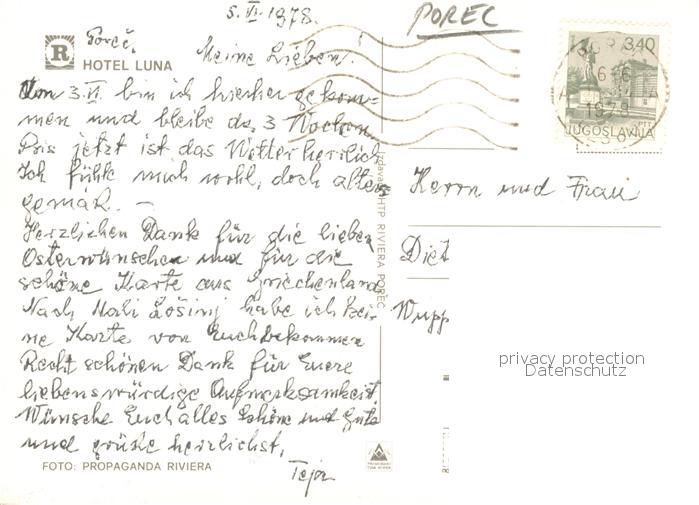 5. VI. 1978.
POREC
Poreč,
HOTEL LUNA
Meine Lieben!
Am 3. VI. bin ich hierher gekom=
men und bleibe da 3 Wochen.
Bis jetzt ist das Wetter herrlich.
Ich fühle mich wohl, doch alters
gemäß. —
Herzlichen Dank für die lieben
Osterwünschen und für die
schöne Karte aus Griechenland
Nach Mali Lošinj habe ich kei-
ne Karte von Euch bekommen
Recht schönen Dank für Euere
liebenswürdige Aufmerksamkeit.
Wünsche Euch alles Schöne und Gute
und grüße herzlichst,
FOTO: PROPAGANDA RIVIERA
HTP RIVIERA POREČ
3,40
1978
JUGOSLAVIJA
Herrn und Frau
Diet
Wupp
privacy protection
Datenschutz